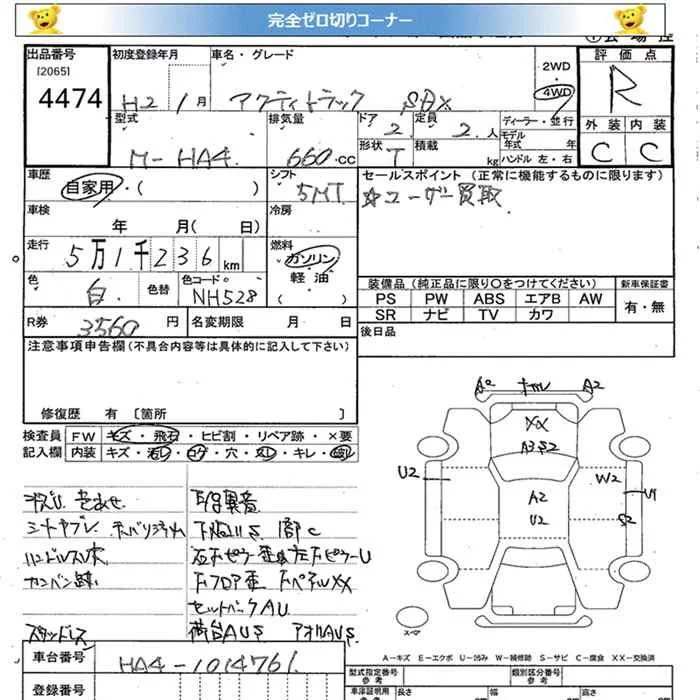 完全ゼロ切りコーナー
出品番号 初度登録年月 車名・グレード 評価点
[2065] 2WD
4474 H2 1月 アクティトラック SDX 4WD R
型式 排気量 ドア 定員 ディーラー・並行 外装 内装
M-HA4 660 CC 2 2人 モデル年式 年式 C C
形状 T 積載 kg ハンドル 左・右
車歴 シフト セールスポイント (正常に機能するものに限ります)
自家用・( ) 5MT ☆ユーザー買取
車検 冷房
年 月( 日)
走行 燃料
5万1千236km ガソリン
色 色替 色コード 軽油
白 NH528 ( )
装備品 (純正品に限り〇をつけてください) 新車保証書
PS PW ABS エアB AW 有・無
SR ナビ TV カワ
R券 3560円 名変期限 月 日 後日品
注意事項申告欄(不具合内容等は具体的に記入して下さい)
修復歴 有 [箇所 ]
検査員 FW キズ・飛石・ヒビ割・リペア跡・×要
記入欄 内装 キズ・汚レ・コゲ・穴・スレ・キレ・
A2 A2
XX
A3 S2
U2 W2 U1
A2
U2 S2
シートヤブレ
ハンドルスレ
カンバン跡
下フロア歪
セットバックAU
スタッドレス 荷台AUS アオリAUS
スペア
A-キズ E-エクボ U-凹み W-補修跡 S-サビ C-腐食 XX-交換済
車台番号 HA4-1014761
登録番号
型式指定番号 参考 類別区分番号 参考
車庫証明用 参考 長さ 幅 高さ